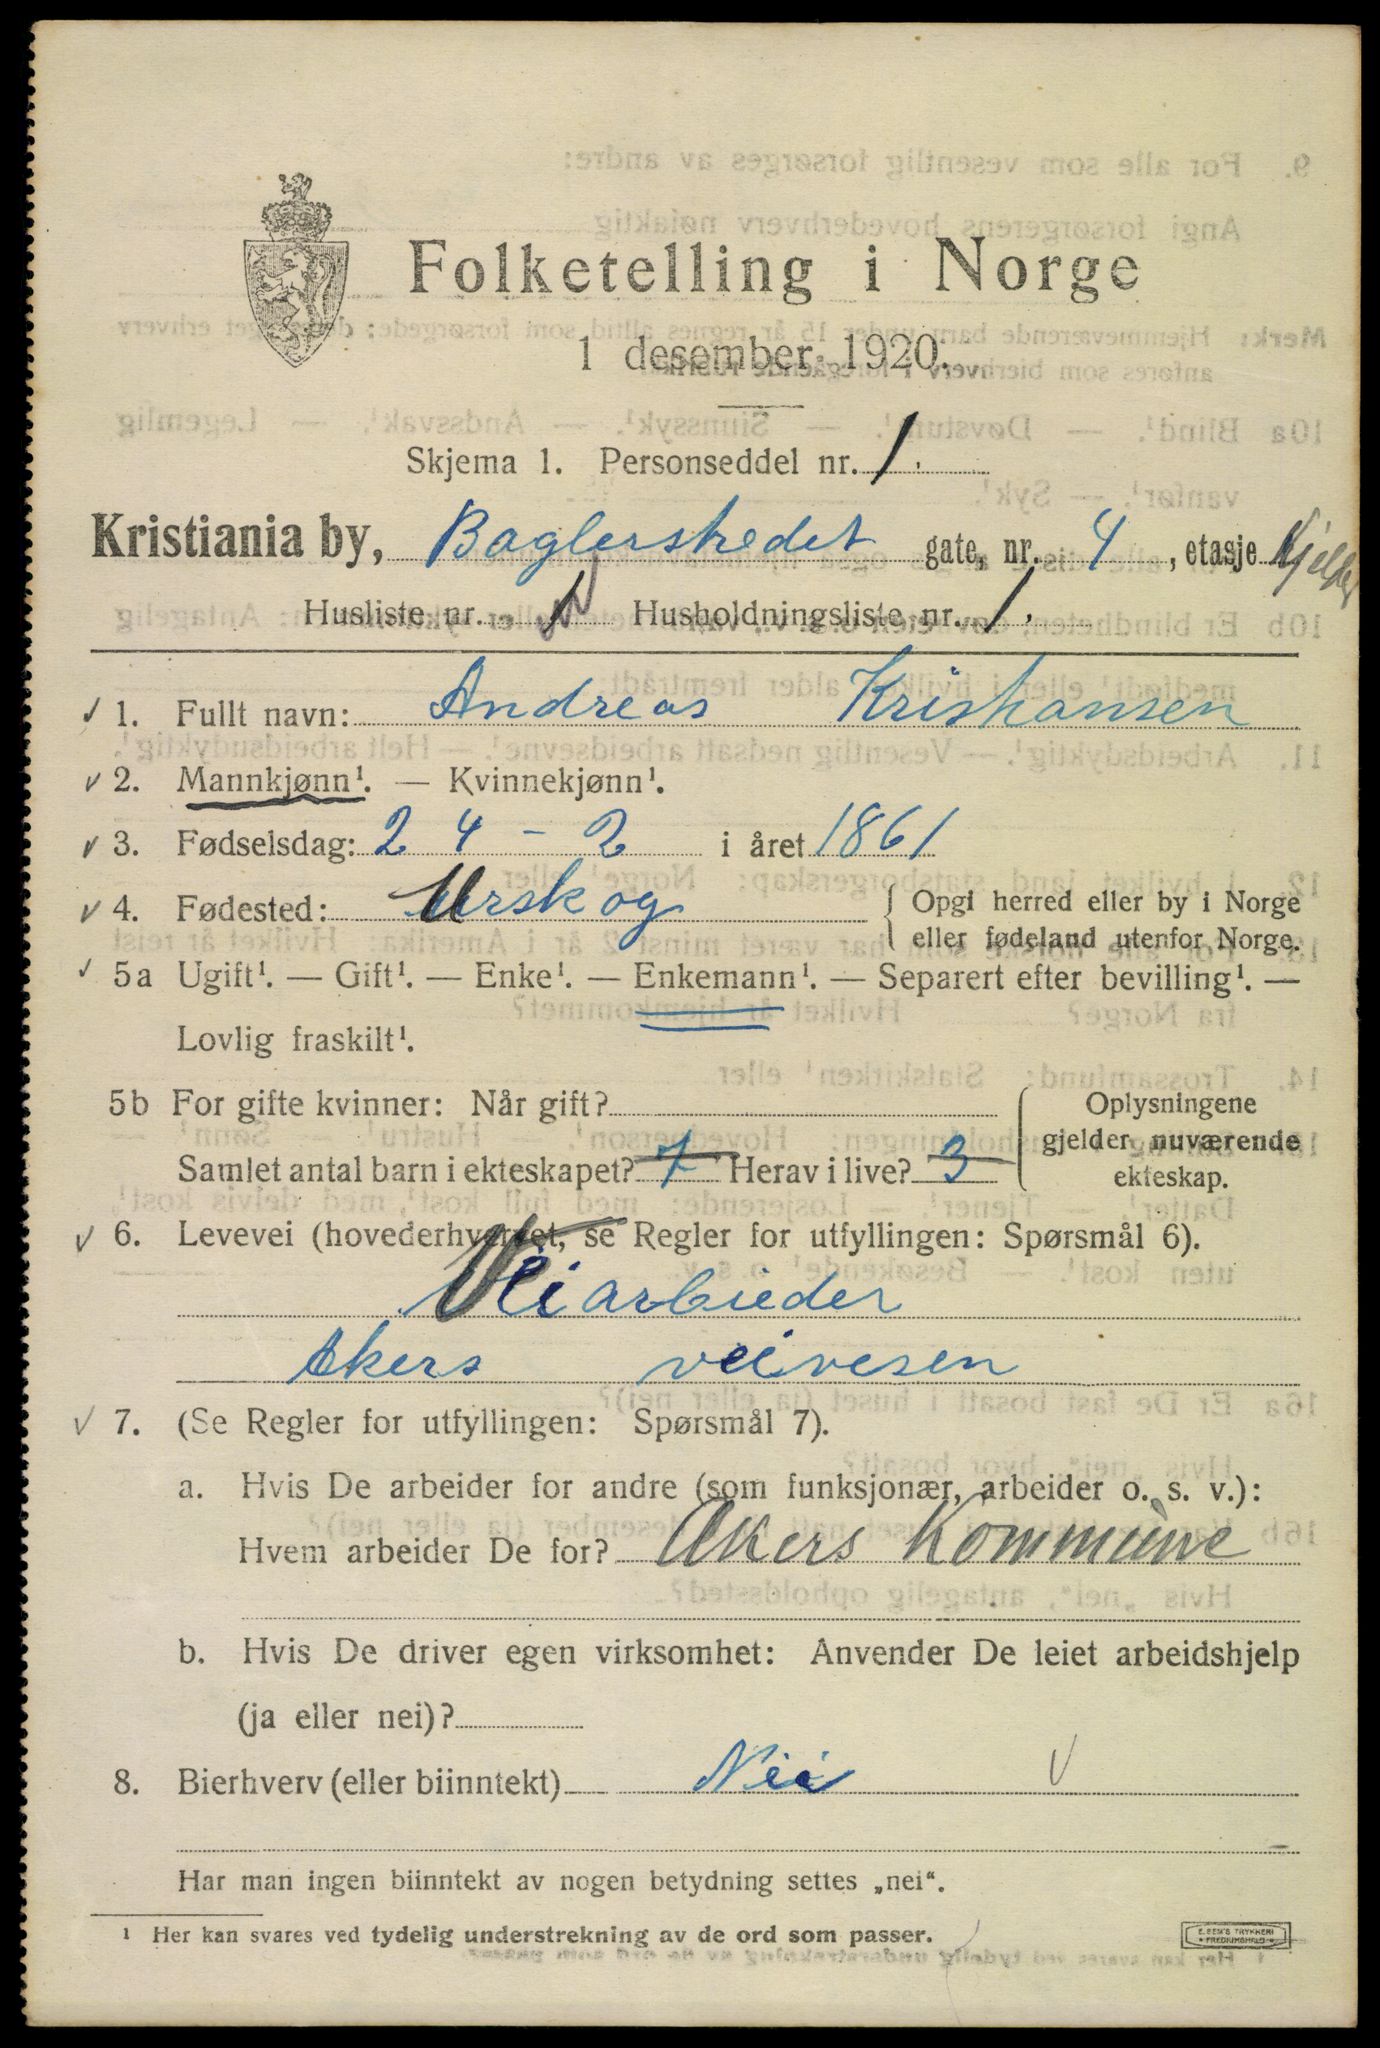 Folketelling i Norge
1 desember 1920.
Skjema 1. Personseddel nr. 1.
Kristiania by, Baglerstredet gate, nr. 4, etasje Kjelder
Husliste nr. Husholdningsliste nr. 1.
1. Fullt navn: Andreas Kristiansen
2. Mannkjønn¹. — Kvinnekjønn¹.
3. Fødselsdag: 24 - 2 i året 1861
4. Fødested: Urskog { Opgi herred eller by i Norge
eller fødeland utenfor Norge.
5a Ugift¹. — Gift¹. — Enke¹. — Enkemann¹. — Separert efter bevilling¹. —
Lovlig fraskilt¹.
5b For gifte kvinner: Når gift?
Samlet antal barn i ekteskapet? 7 Herav i live? 3
Oplysningene
gjelder nuværende
ekteskap.
6. Levevei (hovederhvervet, se Regler for utfyllingen: Spørsmål 6).
Veiarbieder
Akers veivesen
7. (Se Regler for utfyllingen: Spørsmål 7).
a. Hvis De arbeider for andre (som funksjonær, arbeider o. s. v.):
Hvem arbeider De for? Akers Kommune
b. Hvis De driver egen virksomhet: Anvender De leiet arbeidshjelp
(ja eller nei)?
8. Bierhverv (eller biinntekt) Nei
Har man ingen biinntekt av nogen betydning settes „nei“.
¹ Her kan svares ved tydelig understrekning av de ord som passer.
E. SEM'S TRYKKERI
FREDRIKSHALD